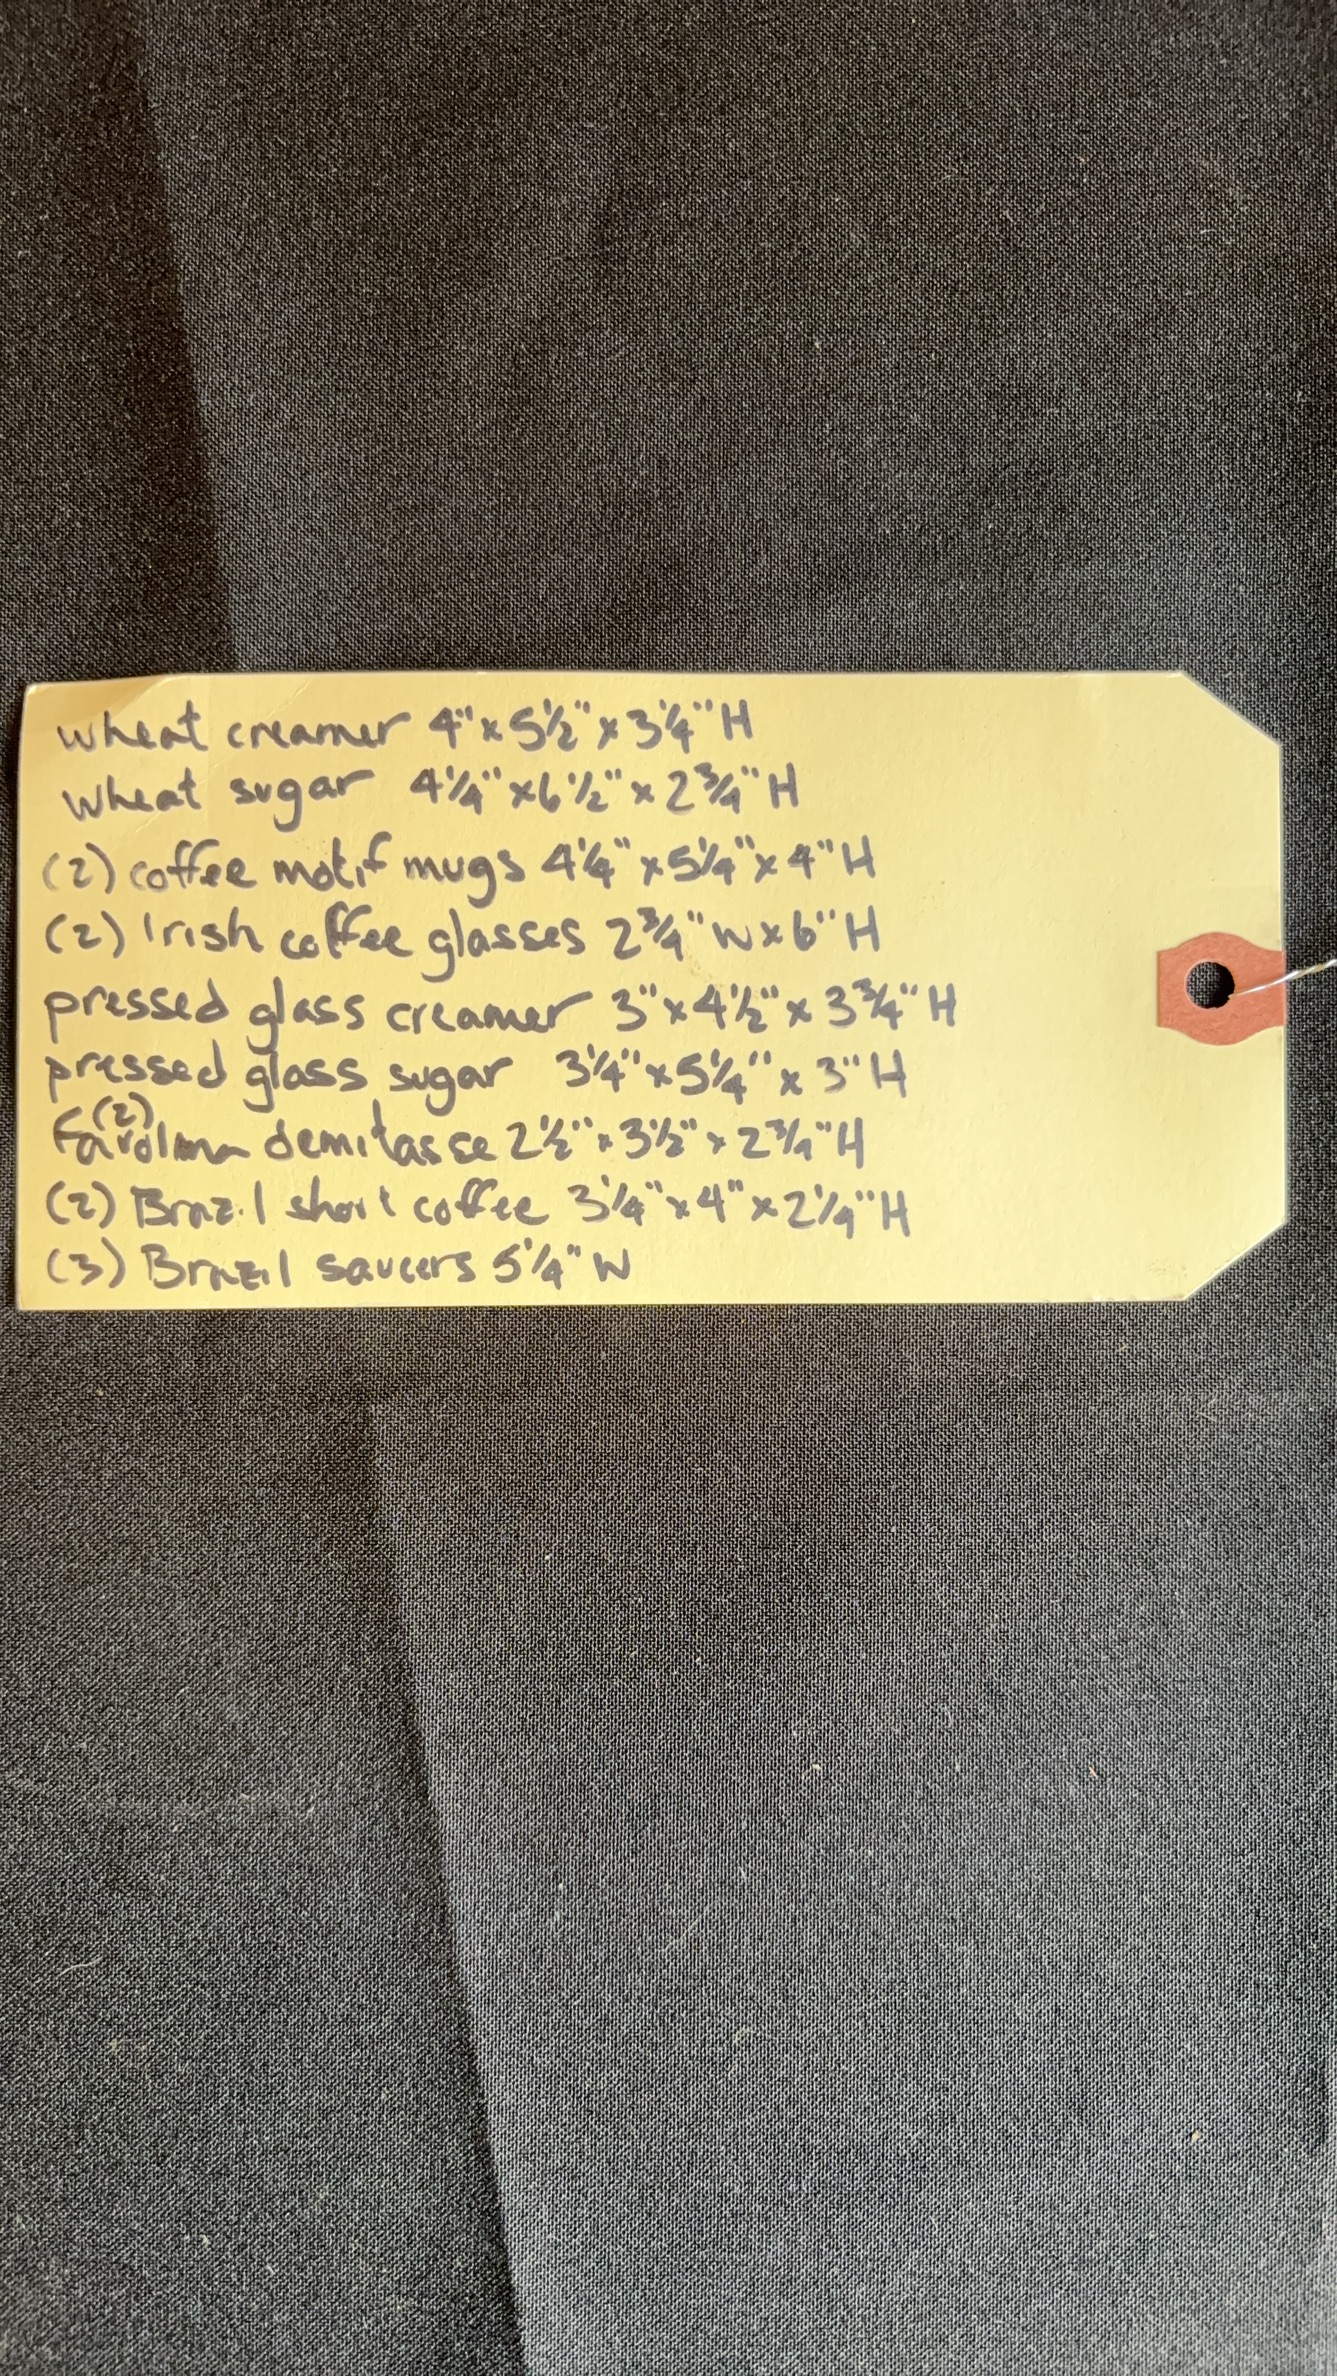 wheat creamer 4" x 5½" x 3¼" H
wheat sugar 4¼" x 6½" x 2¾" H
(2) coffee motif mugs 4¼" x 5¼" x 4" H
(2) Irish coffee glasses 2¾" W x 6" H
pressed glass creamer 3" x 4½" x 3¾" H
pressed glass sugar 3¼" x 5¼" x 3" H
(2) demitasse 2½" x 3½" x 2¾" H
(2) Brazil short coffee 3¼" x 4" x 2¼" H
(3) Brazil saucers 5¼" W